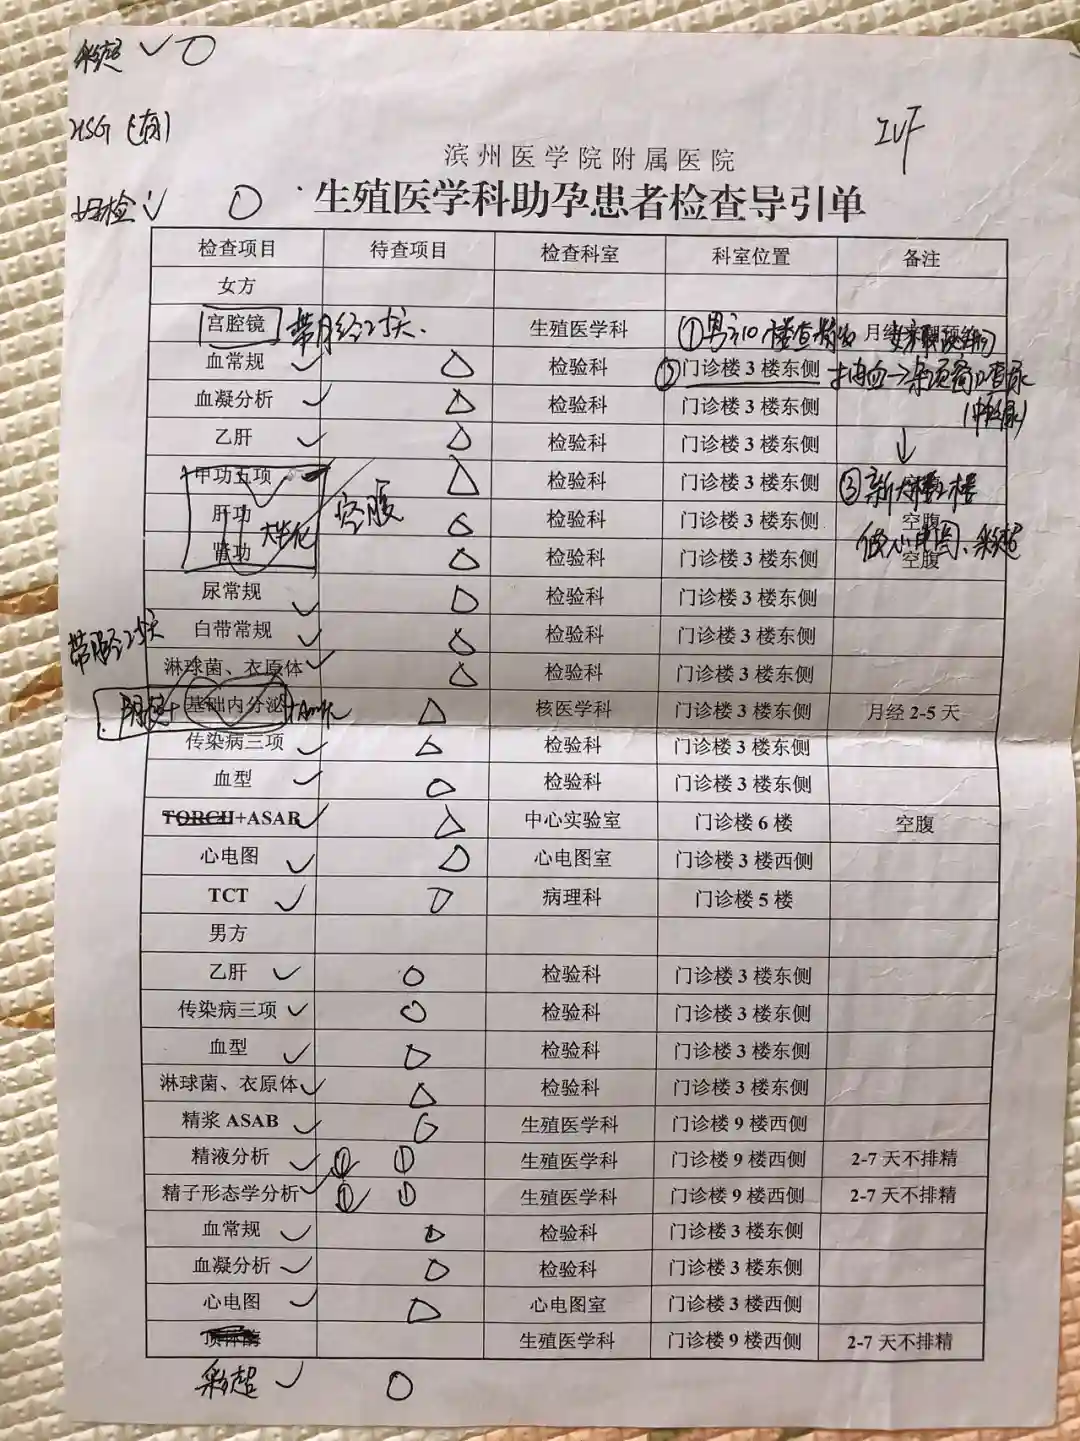 彩超
HSG（有）
IVF
滨州医学院附属医院
妇检
生殖医学科助孕患者检查导引单
检查项目 待查项目 检查科室 科室位置 备注
女方
宫腔镜 带月经2-5天 生殖医学科 ①男方10楼查精液
血常规 检验科 ②门诊楼 3 楼东侧 抽血→
血凝分析 检验科 门诊楼 3 楼东侧
乙肝 检验科 门诊楼 3 楼东侧
甲功五项 检验科 门诊楼 3 楼东侧 ③
肝功 大生化 空腹 检验科 门诊楼 3 楼东侧 空腹
肾功 检验科 门诊楼 3 楼东侧 空腹
做心电图、彩超
尿常规 检验科 门诊楼 3 楼东侧
白带常规 检验科 门诊楼 3 楼东侧
淋球菌、衣原体 检验科 门诊楼 3 楼东侧
基础内分泌 核医学科 门诊楼 3 楼东侧 月经 2-5 天
传染病三项 检验科 门诊楼 3 楼东侧
血型 检验科 门诊楼 3 楼东侧
TORCH+ASAB 中心实验室 门诊楼 6 楼 空腹
心电图 心电图室 门诊楼 3 楼西侧
TCT 病理科 门诊楼 5 楼
男方
乙肝 检验科 门诊楼 3 楼东侧
传染病三项 检验科 门诊楼 3 楼东侧
血型 检验科 门诊楼 3 楼东侧
淋球菌、衣原体 检验科 门诊楼 3 楼东侧
精浆 ASAB 生殖医学科 门诊楼 9 楼西侧
精液分析 ② ① 生殖医学科 门诊楼 9 楼西侧 2-7 天不排精
精子形态学分析 ① 生殖医学科 门诊楼 9 楼西侧 2-7 天不排精
血常规 检验科 门诊楼 3 楼东侧
血凝分析 检验科 门诊楼 3 楼东侧
心电图 心电图室 门诊楼 3 楼西侧
顶体酶 生殖医学科 门诊楼 9 楼西侧 2-7 天不排精
彩超